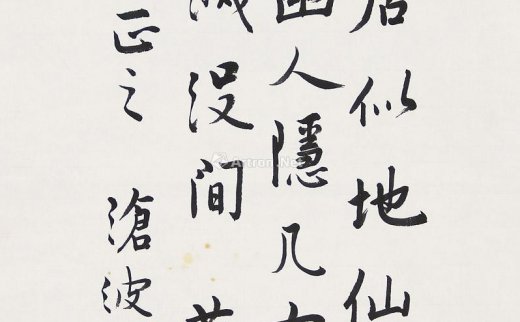 居似地仙
幽人隱几
滅沒間
正之 滄波
Artron.Net